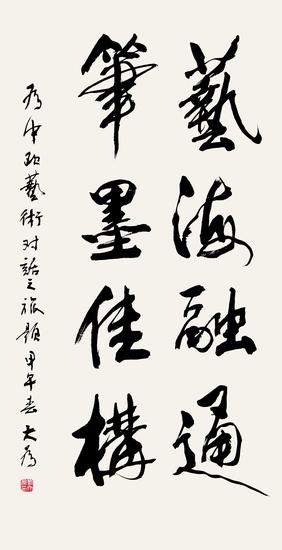 藝海融通
筆墨佳構
为中欧藝術对話之旅題甲午春大为